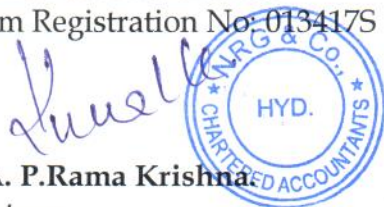 m Registration No: 013417S
NRG & Co.,
HYD.
CHARTERED ACCOUNTANTS
. P.Rama Krishna.